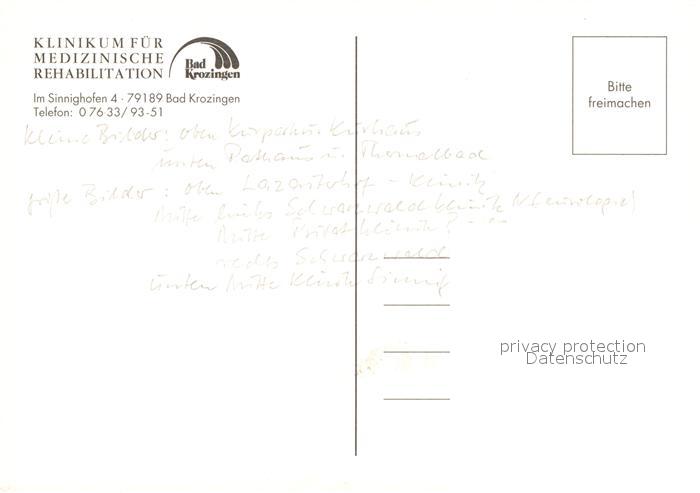 KLINIKUM FÜR
MEDIZINISCHE
REHABILITATION
Bad
Krozingen
Im Sinnighofen 4 · 79189 Bad Krozingen
Telefon: 0 76 33/ 93-51
Bitte
freimachen
Kleine Bilder: oben Kurpark u. Kurhaus
unten Rathaus u. Thermalbad
große Bilder: oben Lazariterhof - Klinik
Mitte links Schwarzwaldklinik (Neurologie)
Mitte Privatklinik?
rechts Schwarzwald
unten Mitte Klinik Sinnig
privacy protection
Datenschutz